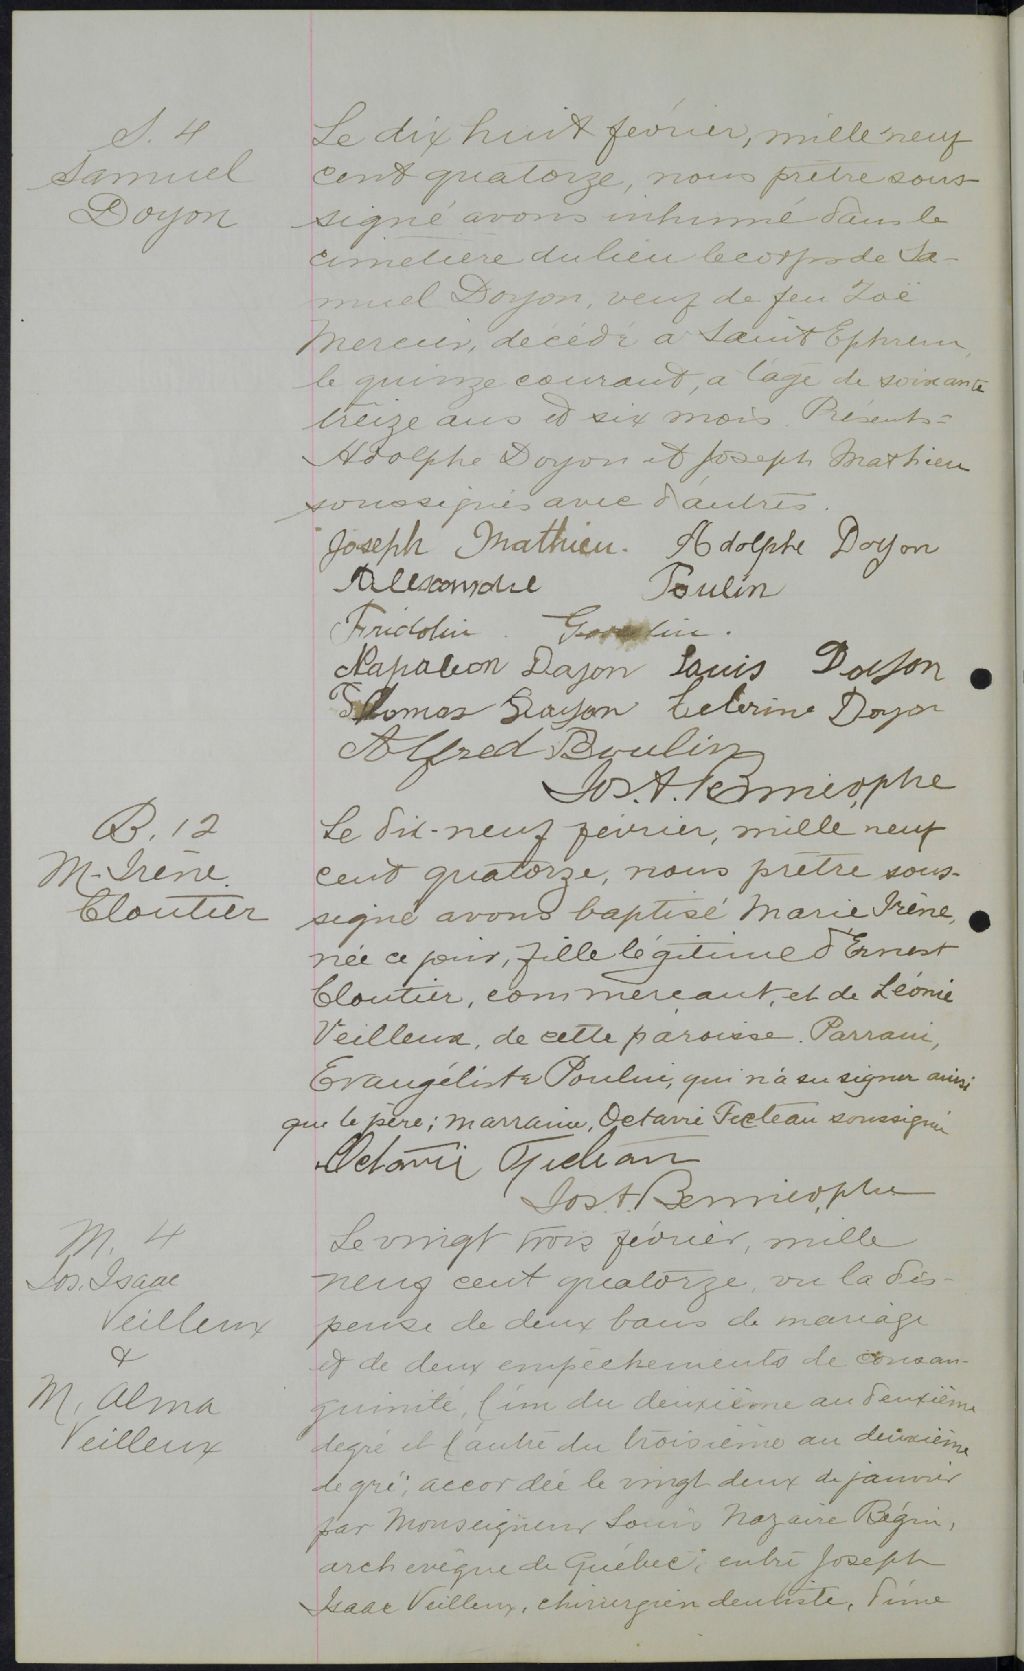 S. 4
Samuel
Doyon
Le dix huit février, mille neuf
cent quatorze, nous prêtre sous-
signé avons inhumé dans le
cimetière du lieu le corps de Sa-
muel Doyon, veuf de feu Zoë
Mercier, décédé à Saint Ephrem,
le quinze courant, a l'âge de soixante
treize ans et six mois. Présents=
Adolphe Doyon et Joseph Mathieu
soussignés avec d'autres.
Joseph Mathieu. Adolphe Doyon
Alexandre Poulin
Fridolin
Napoleon Doyon Louis Doyon
Thomas Doyon Doyon
Alfred Poulin
Jos. A. Bernier, ptre
B. 12
M-Irène
Cloutier
Le dix-neuf février, mille neuf
cent quatorze, nous prêtre sous-
signé avons baptisé Marie Irène,
née ce jour, fille légitime d'Ernest
Cloutier, commercant, et de Léonie
Veilleux, de cette paroisse. Parrain,
Evangéliste Poulin, qui n'a su signer ainsi
que le père; marraine, Octavie Fecteau soussignée
Octavie Fecteau
Jos. A. Bernier, ptre
M. 4
Jos. Isaac
Veilleux
&
M. Alma
Veilleux
Le vingt trois février, mille
neuf cent quatorze, vu la dis-
pense de deux bans de mariage
et de deux empêchements de consan-
guinité, l'un du deuxième au deuxième
degré et l'autre du troisième au deuxième
degré; accordée le vingt deux de janvier
par Monseigneur Louis Nazaire Bégin,
archevêque de Québec; entre Joseph
Isaac Veilleux, chirurgien dentiste, d'une